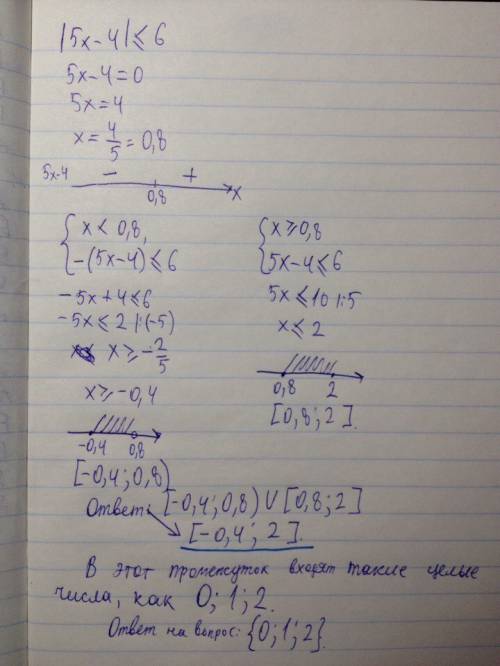 |5x-4|≤6
5x-4=0
5x=4
x=4/5=0,8
5x-4 - + x
0,8
{x<0,8,
-(5x-4)≤6
-5x+4≤6
-5x≤2 |:(-5)
x≥-2/5
x≥-0,4
-0,4 0,8
[-0,4; 0,8)
{x≥0,8
5x-4≤6
5x≤10 |:5
x≤2
0,8 2
[0,8; 2].
Ответ: [-0,4; 0,8) U [0,8; 2]
[-0,4; 2].
В этот промежуток входят такие целые
числа, как 0; 1; 2.
Ответ на вопрос: {0; 1; 2}.